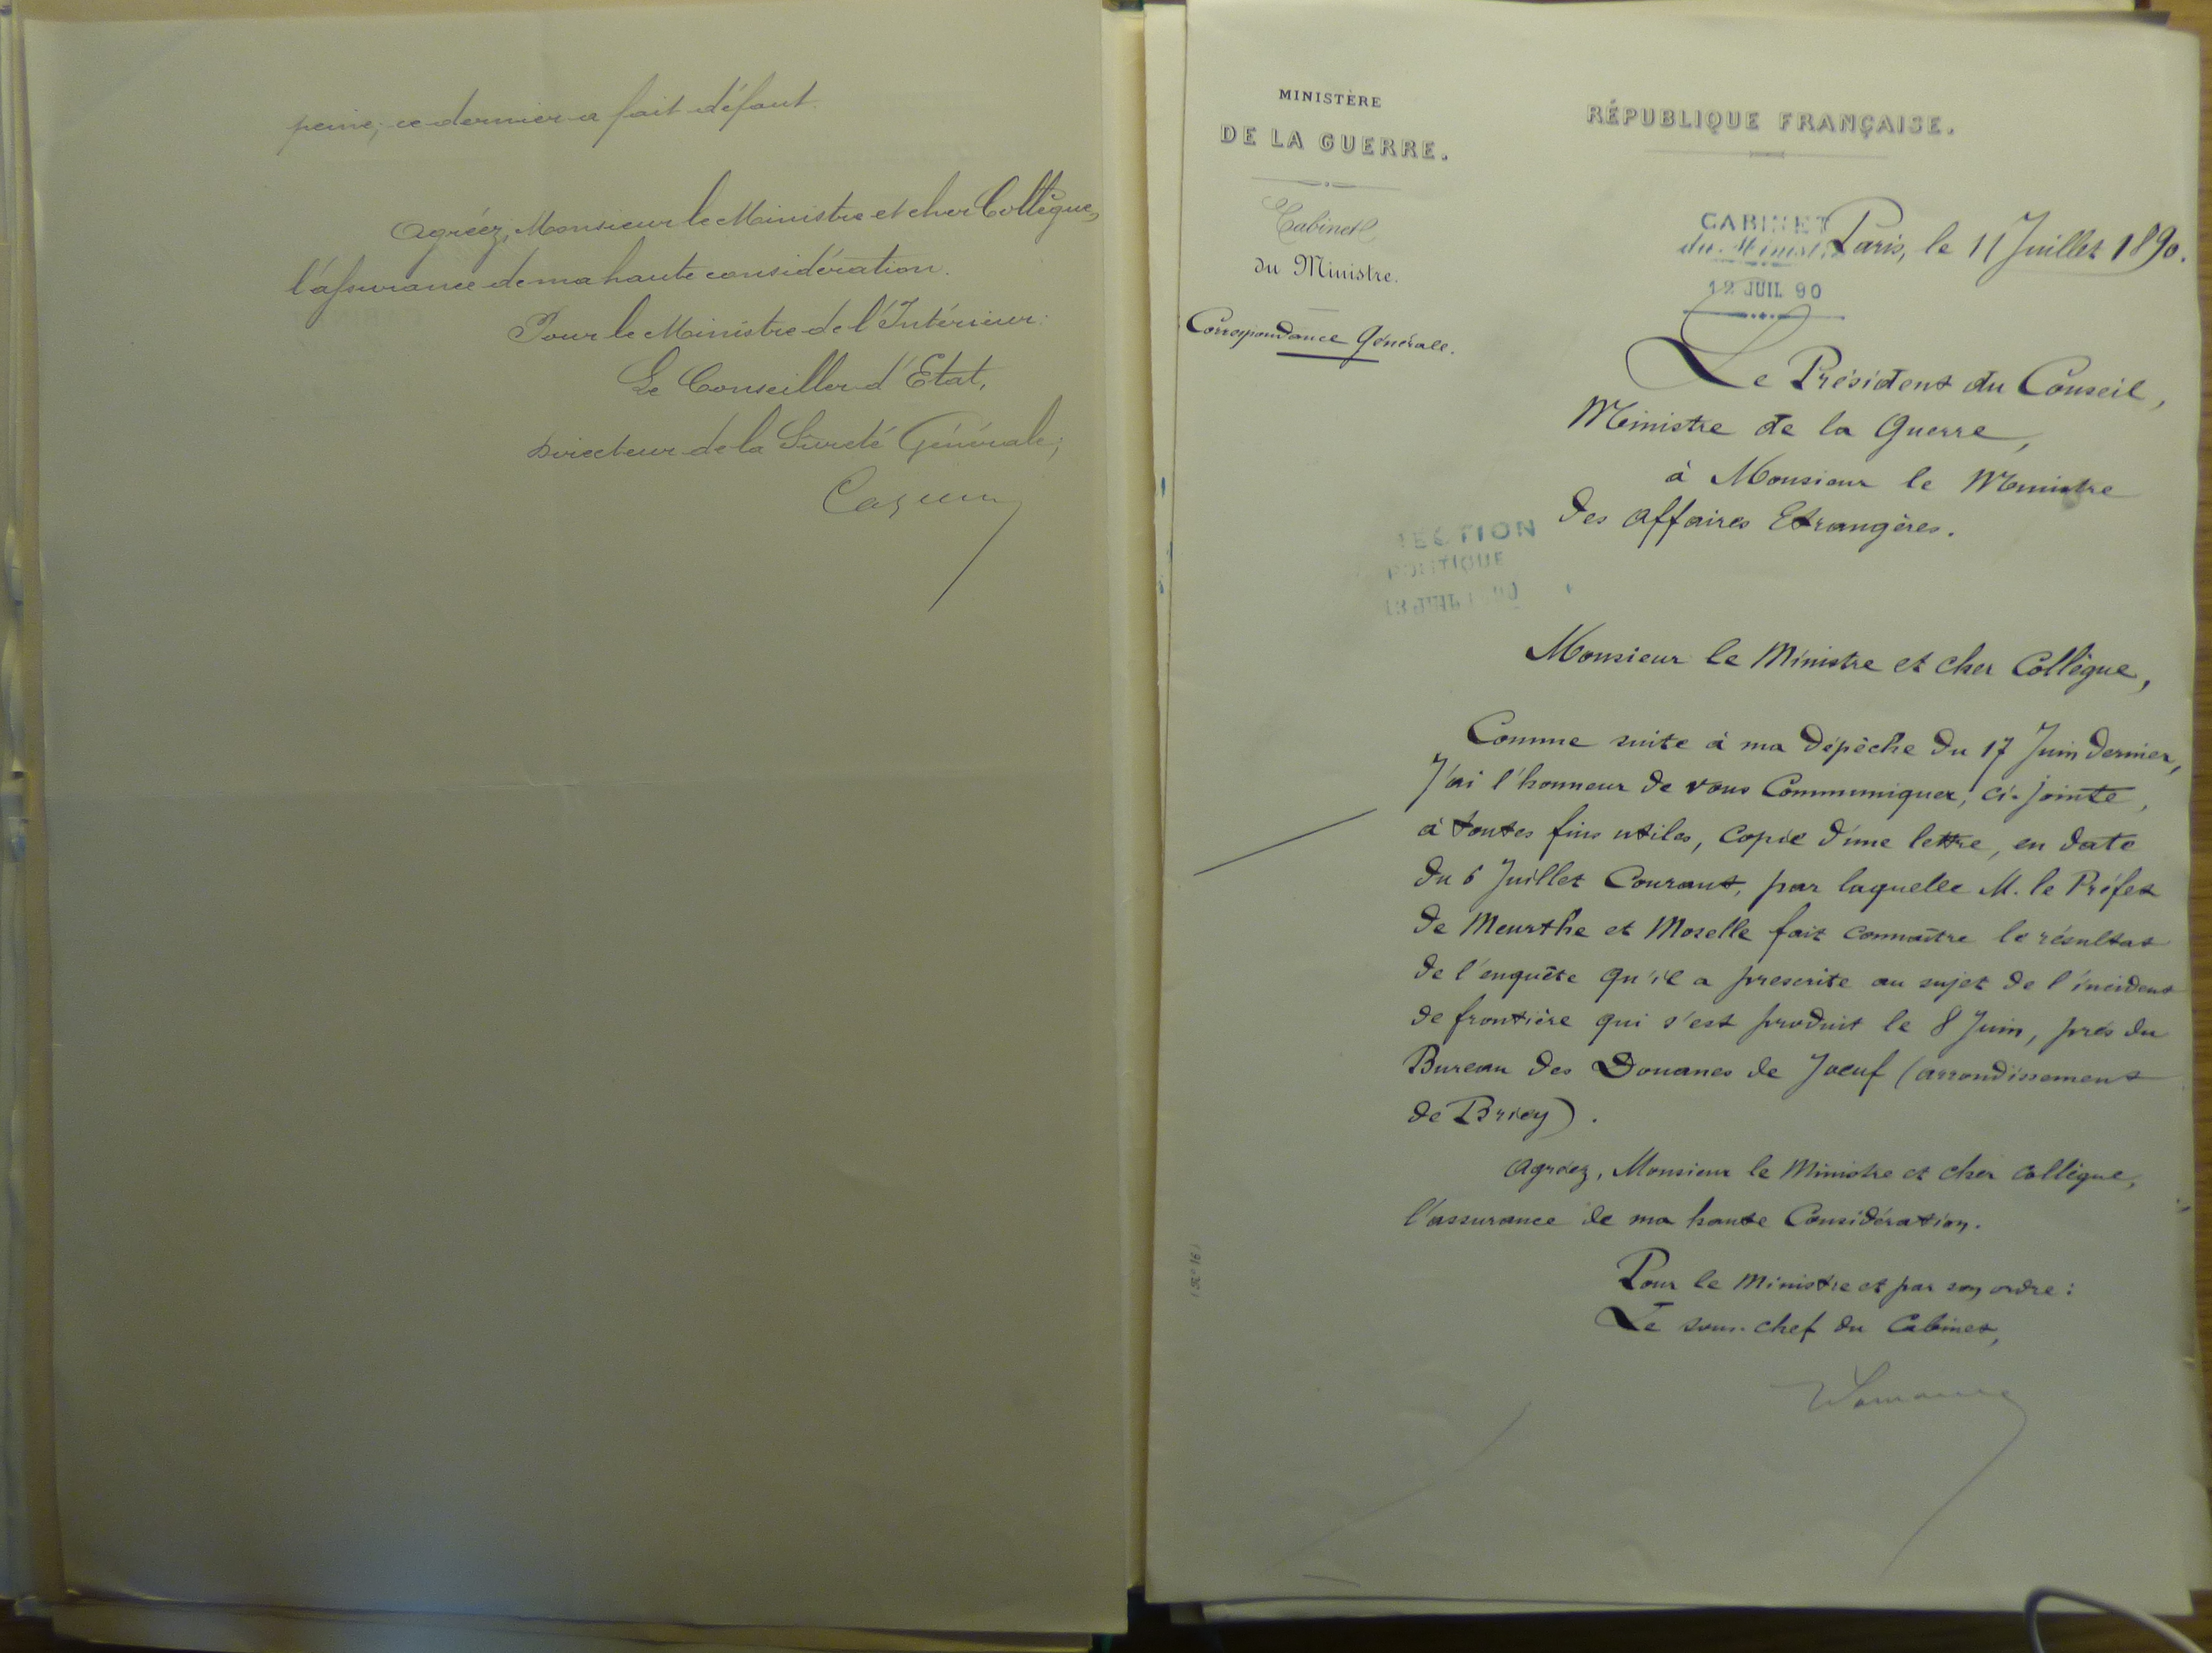 peine, ce dernier a fait défaut.
Agréez, Monsieur le Ministre et cher Collègue,
l'assurance de ma haute considération.
Pour le Ministre de l'Intérieur:
Le Conseiller d'Etat,
Directeur de la Sûreté Générale;
MINISTÈRE
DE LA GUERRE.
Cabinet
du Ministre.
Correspondance Générale.
RÉPUBLIQUE FRANÇAISE.
CABINET
du Ministre
Paris, le 11 Juillet 1890.
12 JUIL 90
Le Président du Conseil,
Ministre de la Guerre,
à Monsieur le Ministre
des Affaires Etrangères.
SECTION
POLITIQUE
Monsieur le Ministre et cher Collègue,
Comme suite à ma dépêche du 17 Juin dernier,
J'ai l'honneur de vous Communiquer, ci-jointe,
à toutes fins utiles, copie d'une lettre, en date
du 6 Juillet Courant, par laquelle M. le Préfet
de Meurthe et Moselle fait connaître le résultat
de l'enquête qu'il a prescrite au sujet de l'incident
de frontière qui s'est produit le 8 Juin, près du
Bureau des Douanes de Joeuf (arrondissement
de Briey).
Agréez, Monsieur le Ministre et cher collègue,
l'assurance de ma haute Considération.
Pour le Ministre et par son ordre:
Le sous-chef du Cabinet,